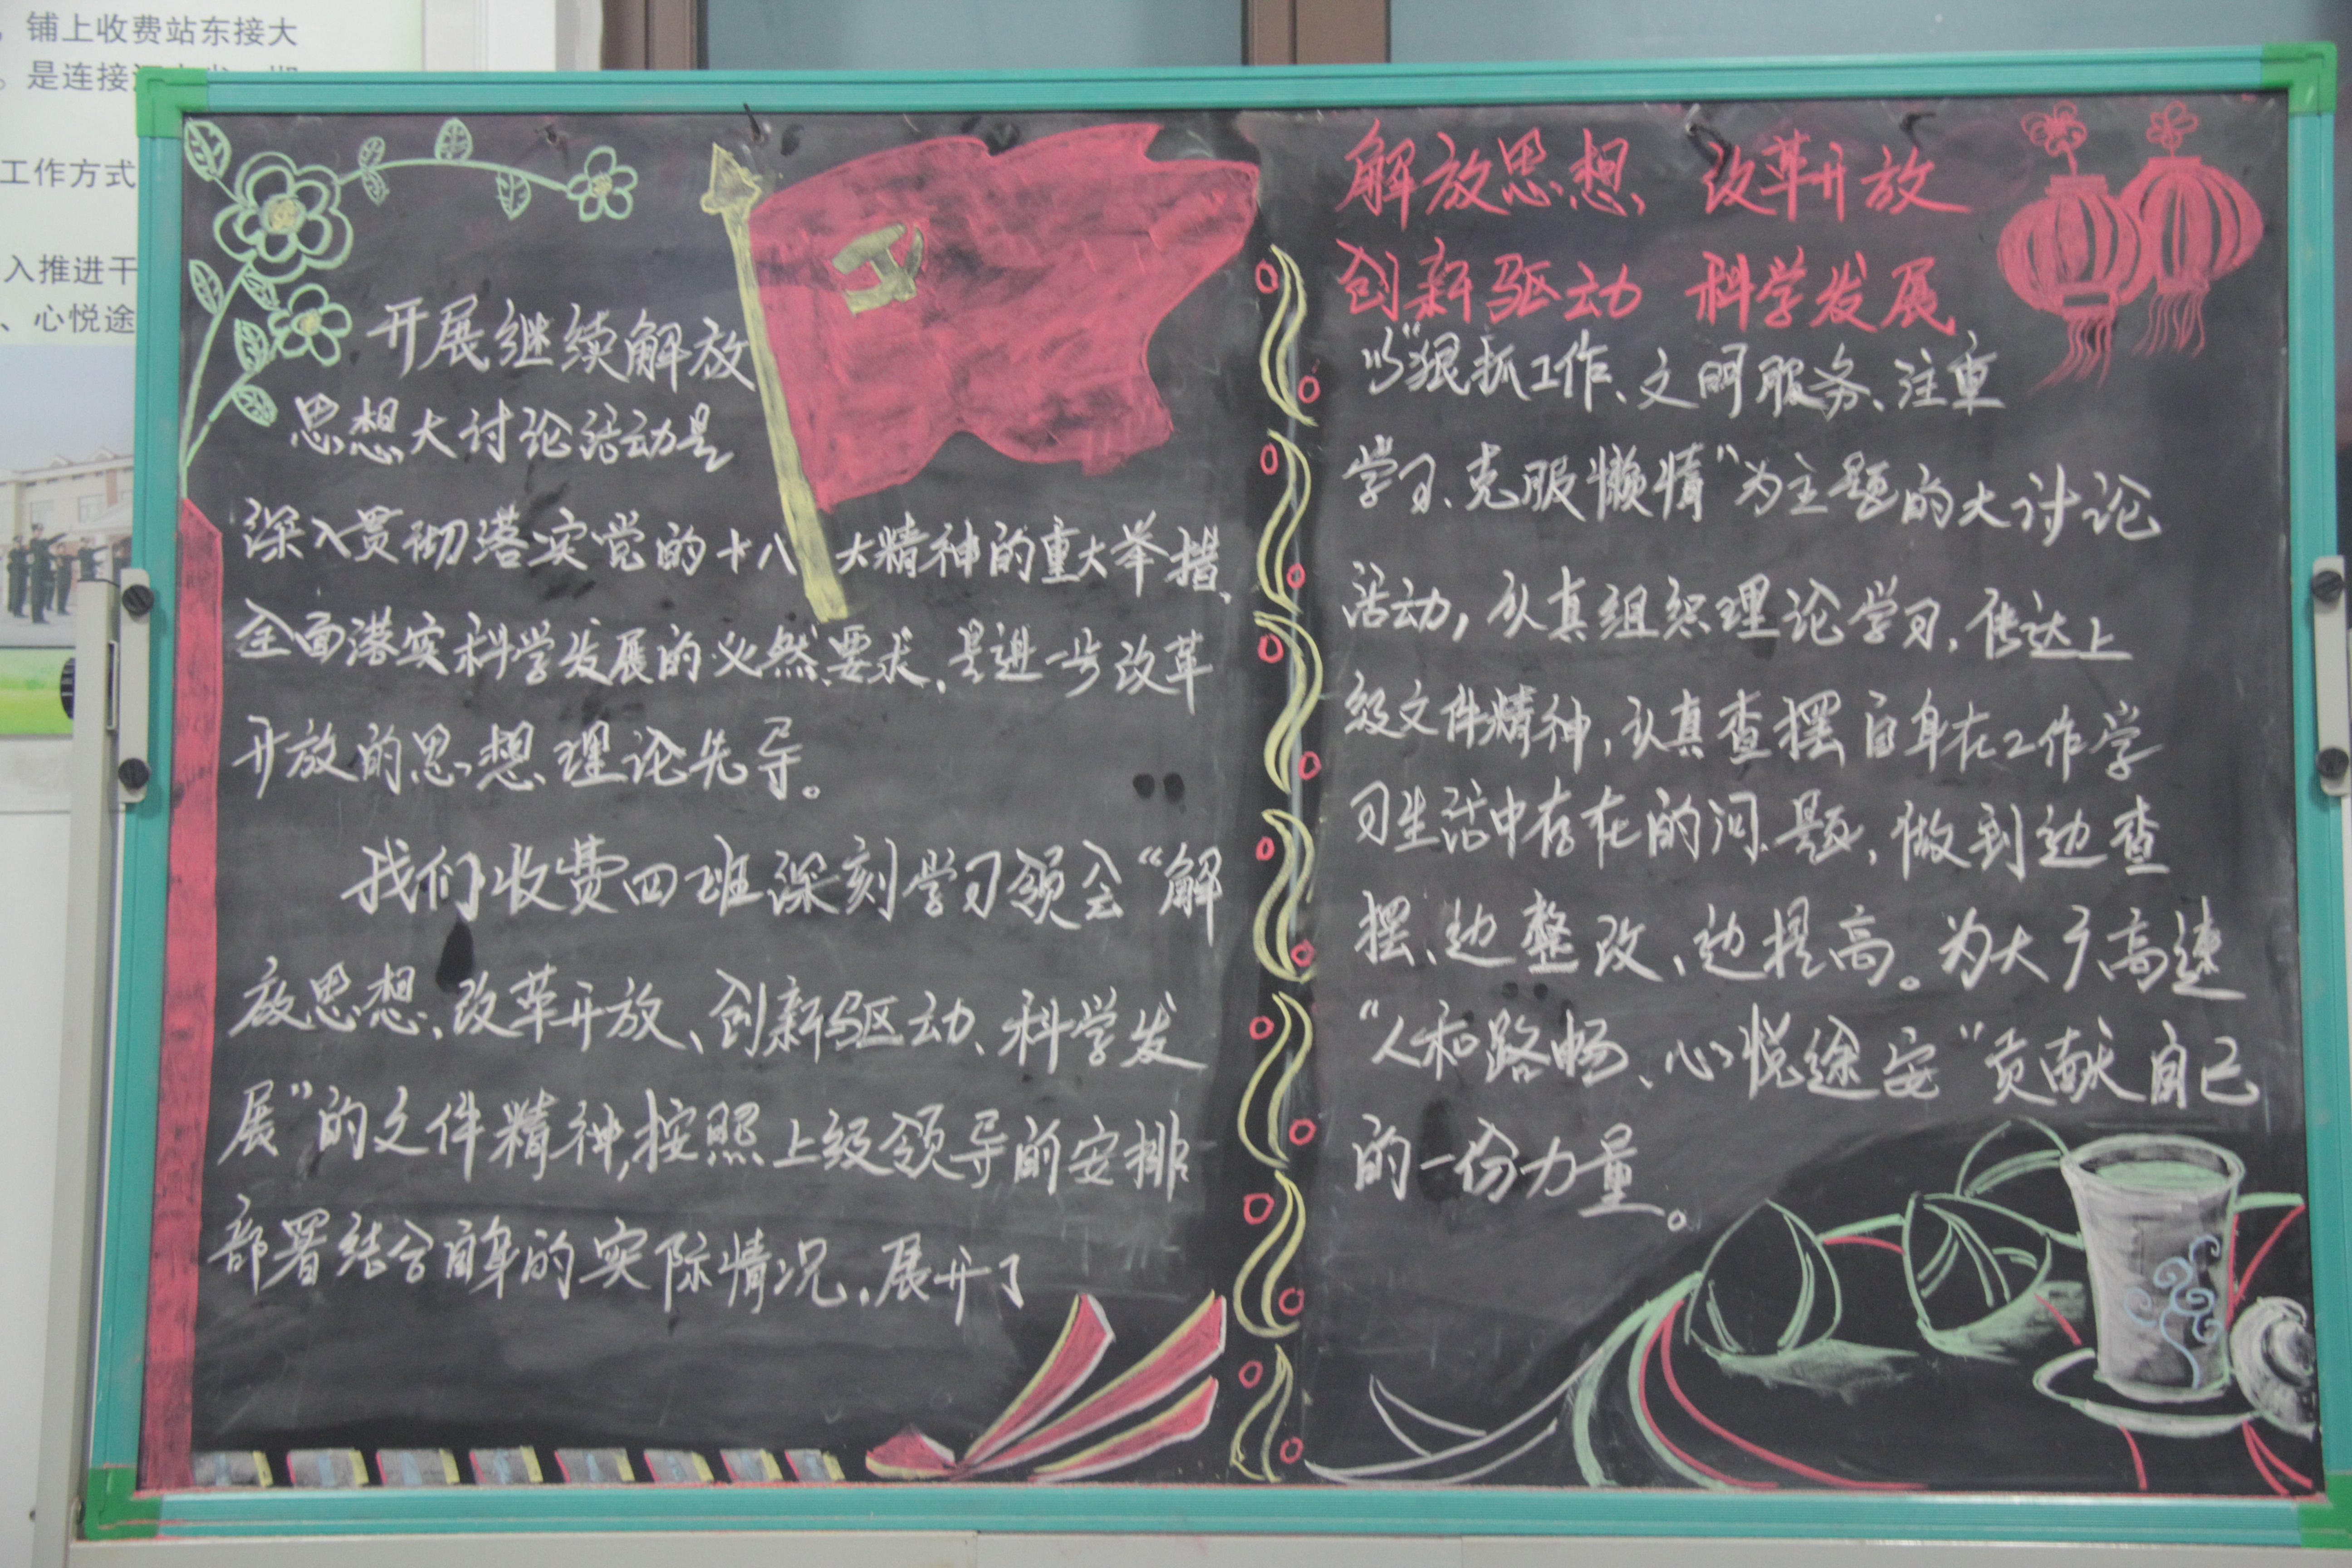 铺上收费站东接大
。是连接
工作方式
入推进干
、心悦途
开展继续解放
思想大讨论活动是
深入贯彻落实党的十八大精神的重大举措、
全面落实科学发展的必然要求，是进一步改革
开放的思想理论先导。
我们收费四班深刻学习领会“解
放思想、改革开放、创新驱动、科学发
展”的文件精神，按照上级领导的安排
部署结合自身的实际情况，展开了
解放思想 改革开放
创新驱动 科学发展
以“狠抓工作、文明服务、注重
学习、克服懒惰”为主题的大讨论
活动，认真组织理论学习，传达上
级文件精神，认真查摆自身在工作学
习生活中存在的问题，做到边查
摆、边整改，边提高。为大广高速
“人和路畅、心悦途安”贡献自己
的一份力量。